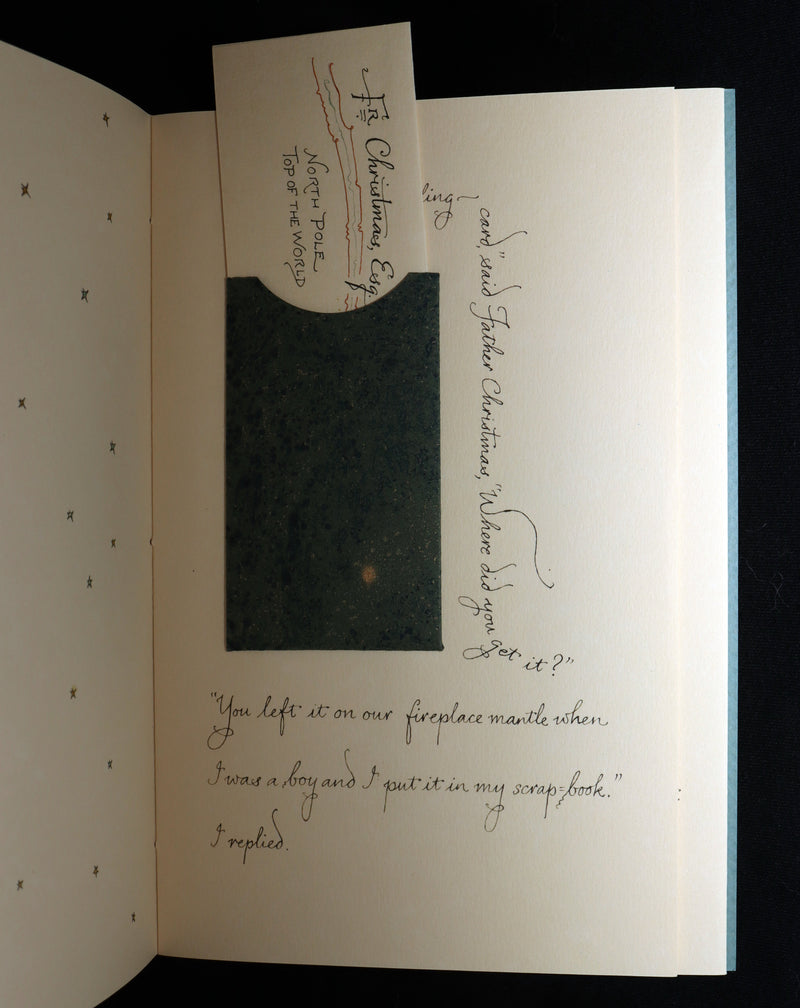 Fr Christmas, Esq.
NORTH POLE
TOP OF THE WORLD
ling-
card," said Father Christmas, "Where did you get it?"
"You left it on our fireplace mantle when
I was a boy and I put it in my scrap=book."
I replied.